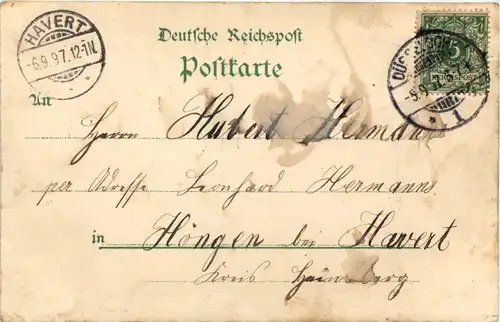 HAVERT
-6.9.97.12-1N.
Deutsche Reichspost
Postkarte
DÜSSELDORF
1
5
REICHSPOST
An
Herrn Hubert Hermanns
per Adresse Leonhard Hermanns
in Höngen bei Havert
Kreis Heinsberg